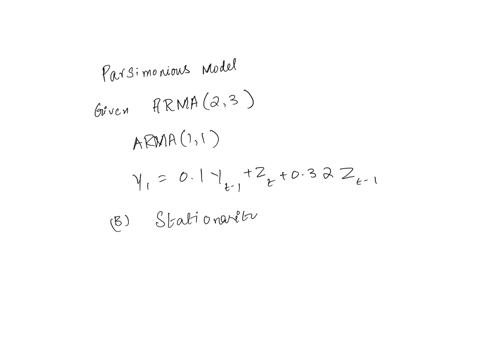 Parsimonious Model
Given ARMA(2,3)
ARMA(1,1)
Y₁ = 0.1 Y_{t-1} + Z_t + 0.32 Z_{t-1}
(B) Stationarity